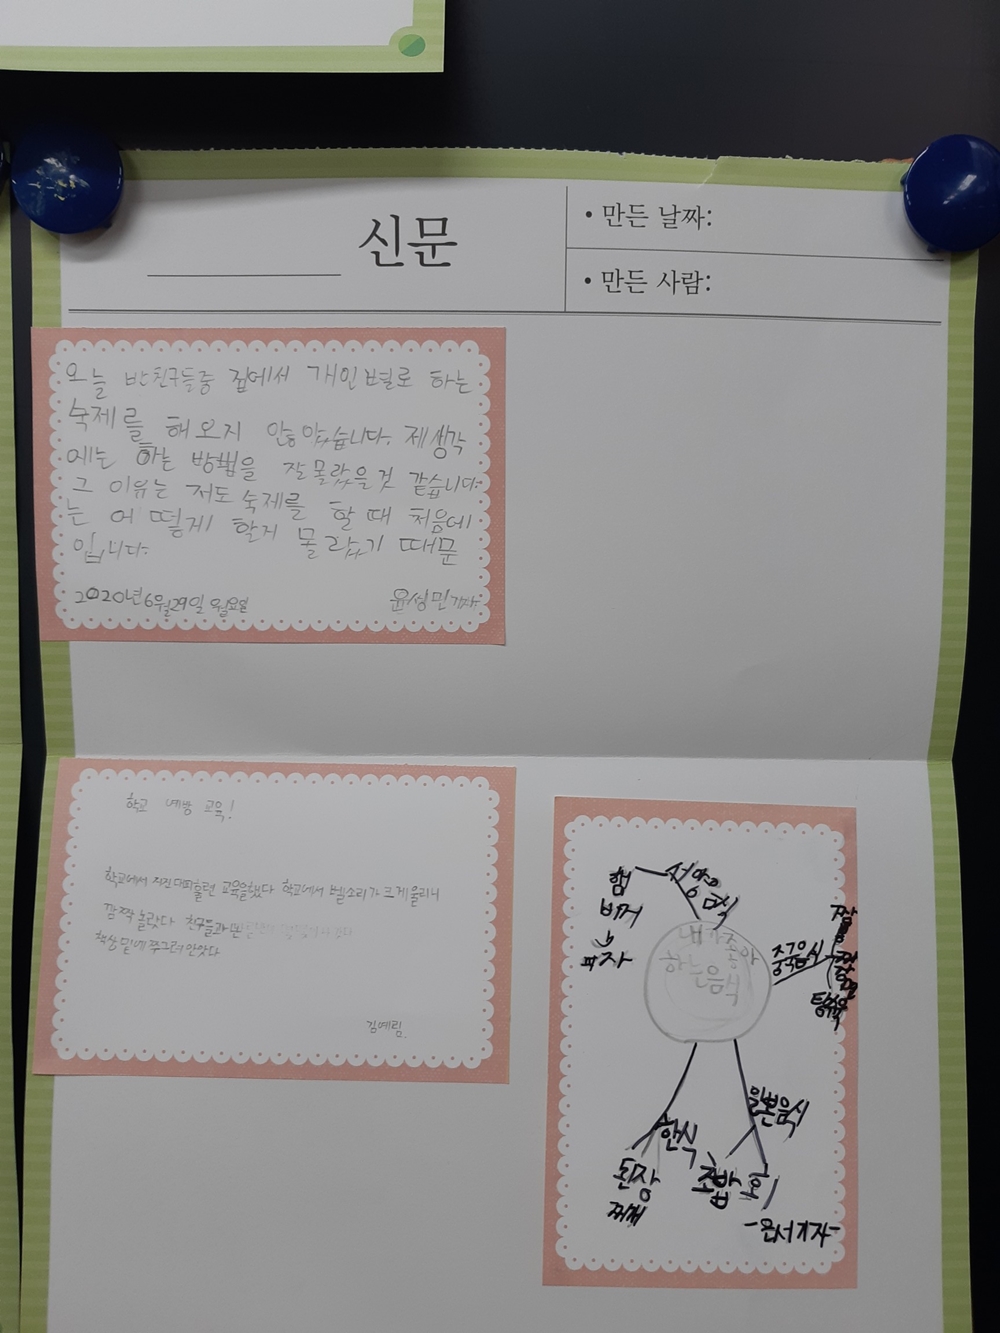 신문
• 만든 날짜:
• 만든 사람:
오늘 반친구들중 집에서 개인별로 하는
숙제를 해오지 안았습니다. 제생각
에는 하는 방법을 잘몰랐을것 같습니다.
그 이유는 저도 숙제를 할 때 처음에
는 어떻게 할지 몰랐기 때문
입니다.
2020년6월29일 월요일 윤성민기자
학교 예방 교육!
학교에서 지진대피훈련 교육을했다 학교에서 벨소리가 크게울리니
깜짝 놀랐다 친구들과
책상 밑에 쭈그려 안았다
김예림.
내가좋아
하는음식
서양음식
햄
버거
피자
중국음식
짬뽕
짜장면
탕수육
한식
된장
찌개
일본음식
초밥
회
-은서기자-